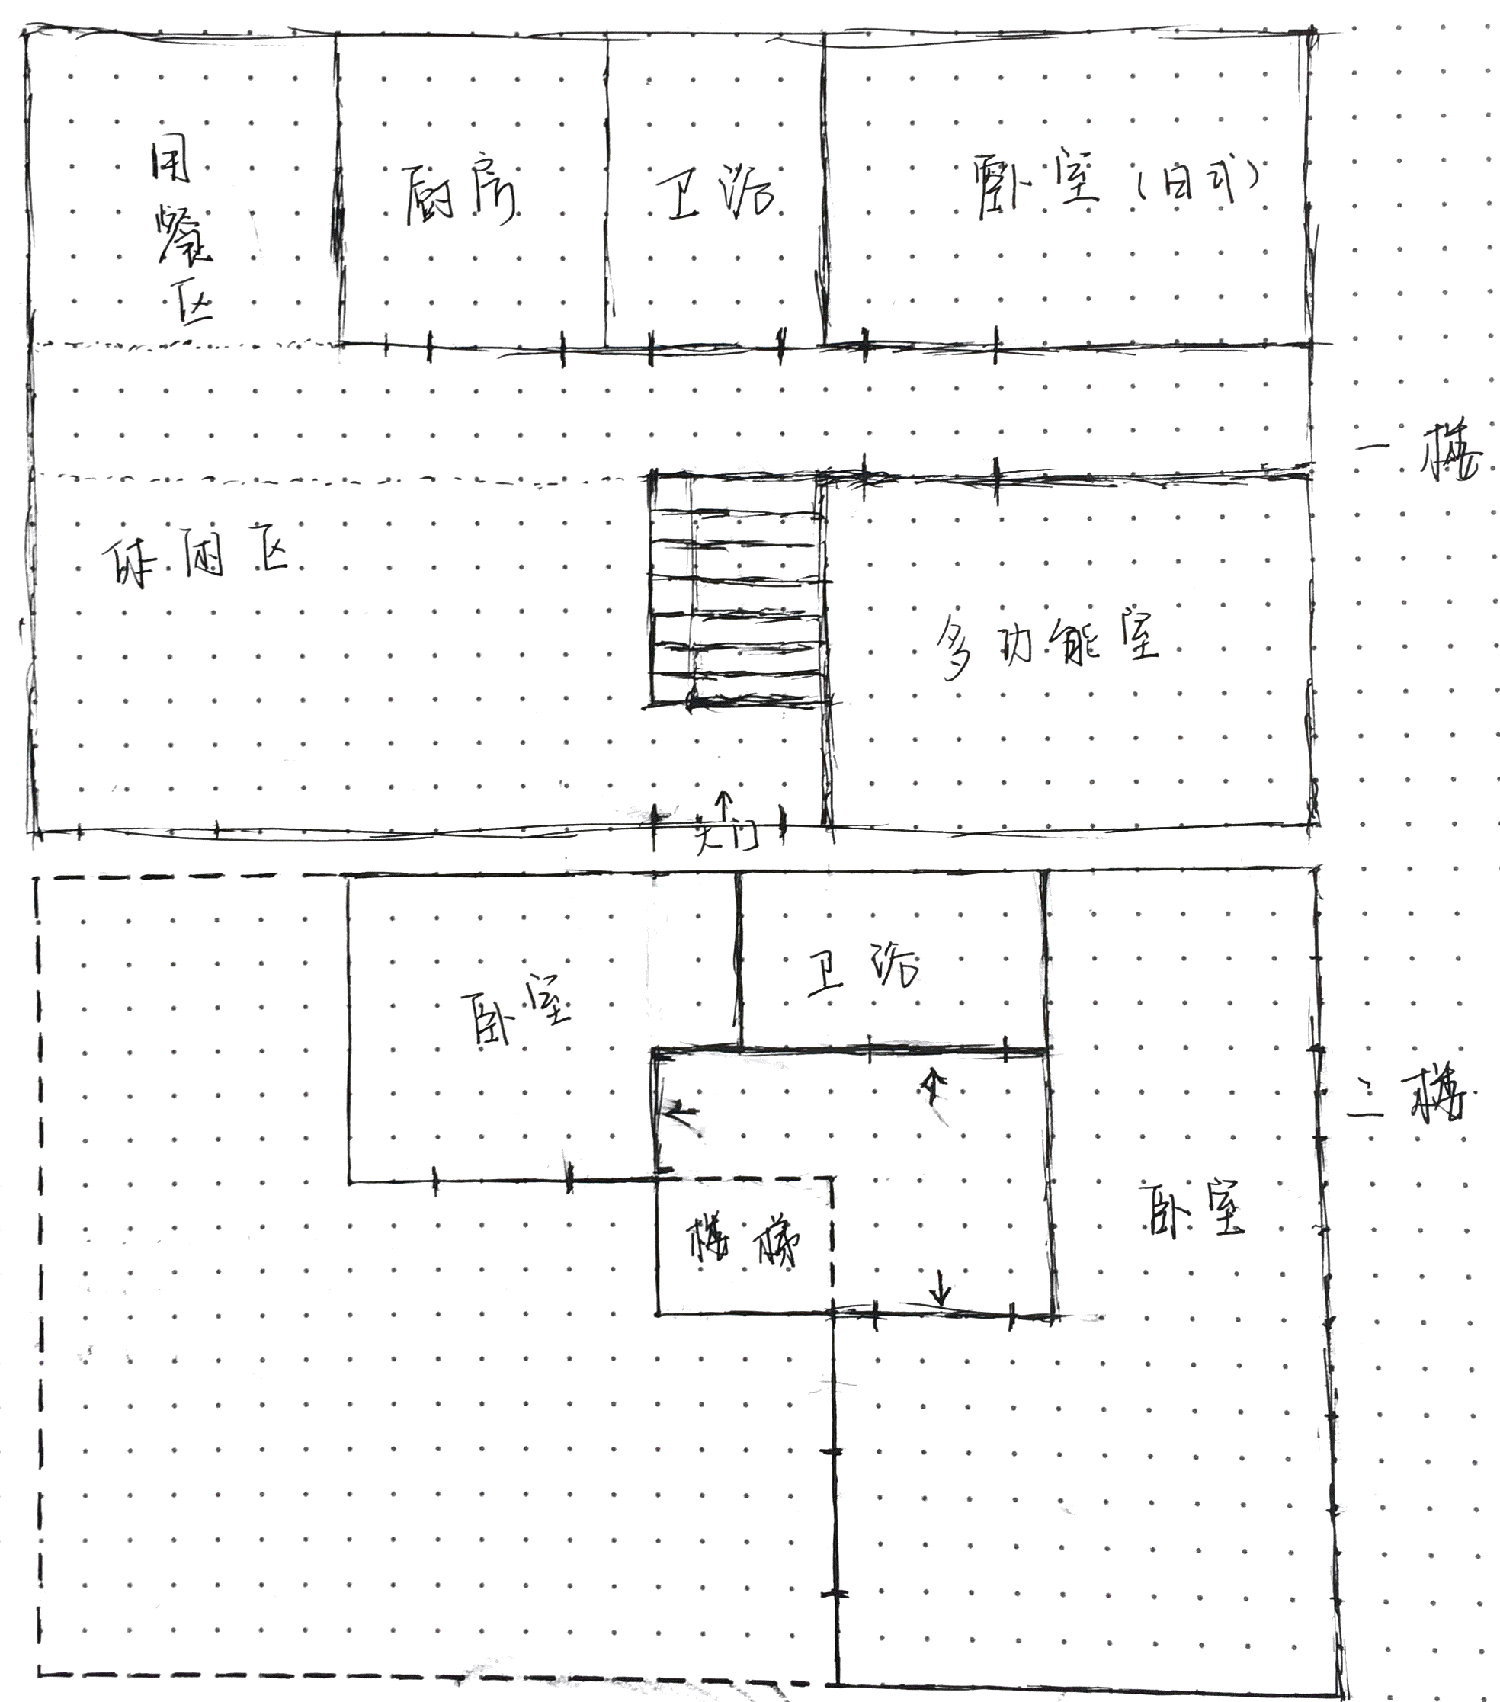 用餐区
厨房
卫浴
卧室(日式)
一楼
休闲区
多功能室
大门
卧室
卫浴
二楼
卧室
楼梯